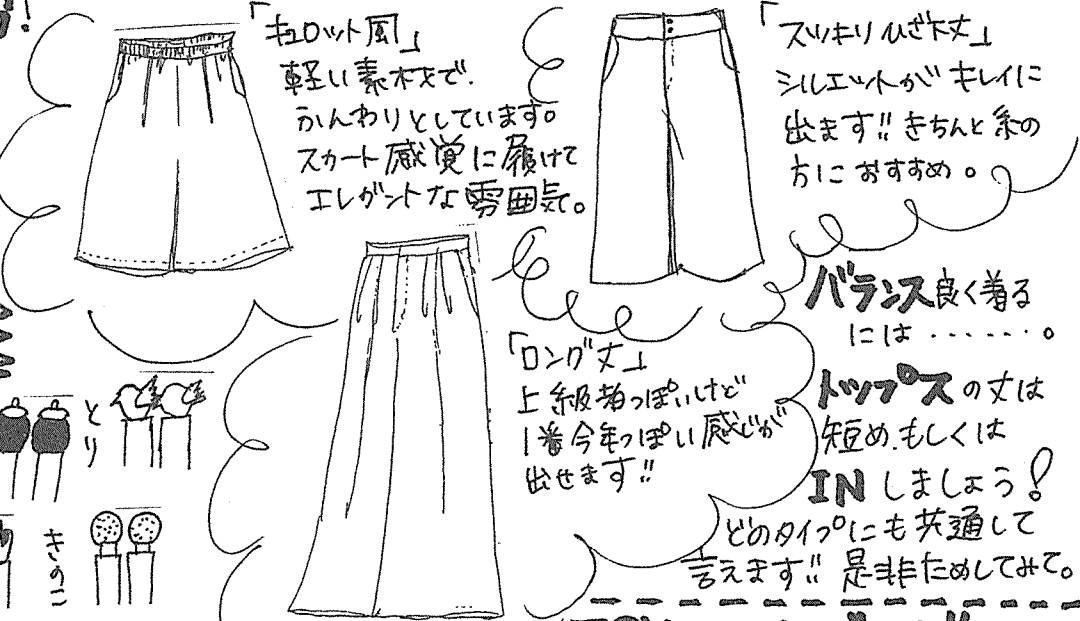 「キュロット風」
軽い素材で、
ふんわりとしています。
スカート感覚に履けて
エレガントな雰囲気。
「スッキリひざ下丈」
シルエットがキレイに
出ます!! きちんと系の
方におすすめ。
「ロング丈」
上級者っぽいけど
1番今年っぽい感じが
出せます!!
バランス良く着る
には・・・・・・・。
トップスの丈は
短め、もしくは
INしましょう!
どのタイプにも共通して
言えます!! 是非ためしてみて。
とり
きのこ